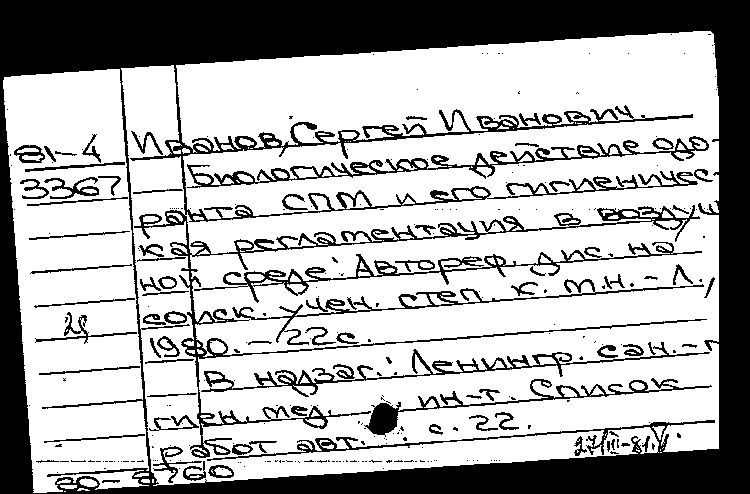 81-4
3367
Иванов, Сергей Иванович.
Биологическое действие одо-
ранта СПМ и его гигиеничес-
кая регламентация в воздуш
ной среде: Автореф. дис. на
соиск. учен. степ. к. м.н. - Л.,
1980. - 22 с.
В надзаг.: Ленингр. сан.-г
гиен. мед. ин-т. Список
работ авт.: с. 22.
27/III-81.
80-8760